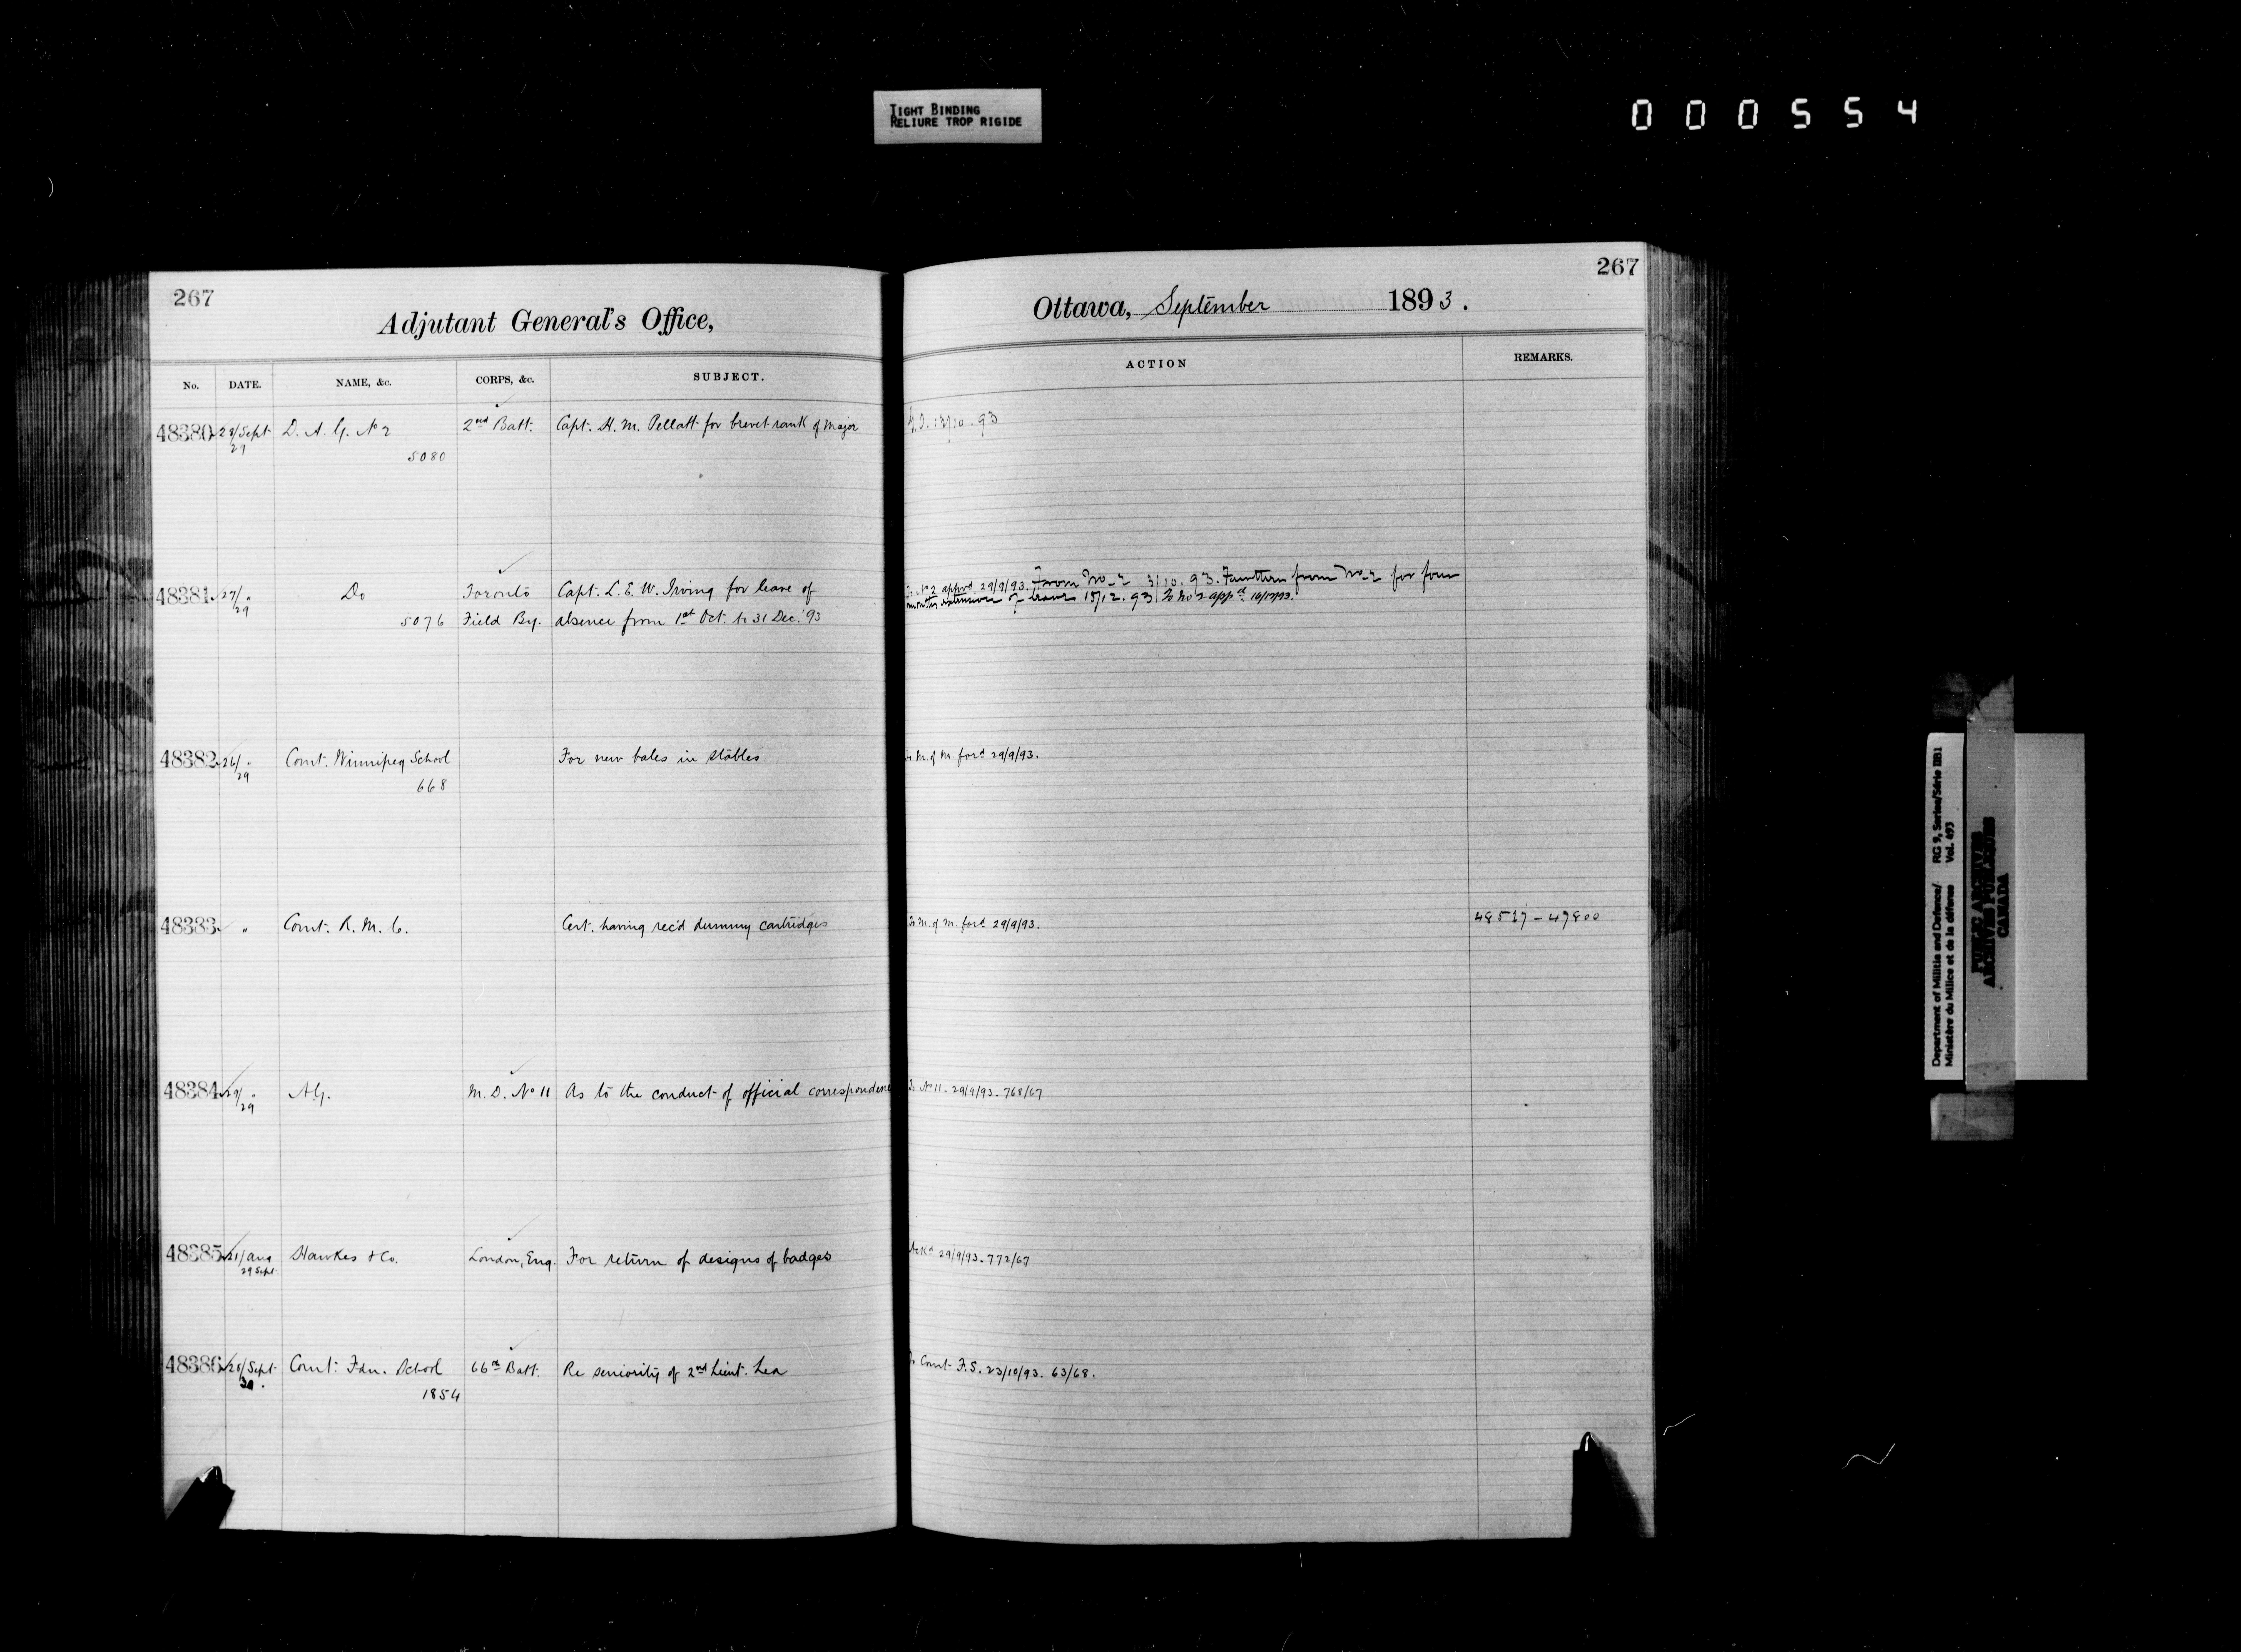 TIGHT BINDING
RELIURE TROP RIGIDE
000554
267
Adjutant General's Office,
No. DATE. NAME, &c. CORPS, &c. SUBJECT.
48380 28/Sept D. A. G. No 2 2nd Batt. Capt. H. M. Pellatt for brevet rank of Major
29
5080
48381 27/ " Do Toronto Capt. L. E. W. Irving for leave of
29
5076 Field By. absence from 1st Oct. to 31 Dec. '93
48382 26/ " Comt. Winnipeg School For new bales in stables
29
668
48383 " Comt. R. M. C. Cert. having rec'd dummy cartridges
48384 29/ " A.G. M. D. No 11 As to the conduct of official correspondence
29
48385 21/Aug Hawkes & Co. London, Eng. For return of designs of badges
29 Sept.
48386 28/Sept Comt. Fdn. School 66th Batt. Re seniority of 2nd Lieut. Lea
30.
1854
267
Ottawa, September 1893.
ACTION REMARKS.
G.O. 13/10.93
To No 2 appvd. 29/9/93. From No_2 3/10.93. Further from No_2 for four
months extension of leave 15/12.93 To No 2 appd 16/12/93.
To M. of M. ford 29/9/93.
To M. of M. ford 29/9/93. 48517 - 47800
To No 11. 29/9/93. 768/67
Ackd 29/9/93. 772/67
To Comt F.S. 23/10/93. 63/68.
Department of Militia and Defence/ RG 9, Series/Série IIB1
Ministère du Milice et de la défense Vol. 493
PUBLIC ARCHIVES
ARCHIVES PUBLIQUES
CANADA